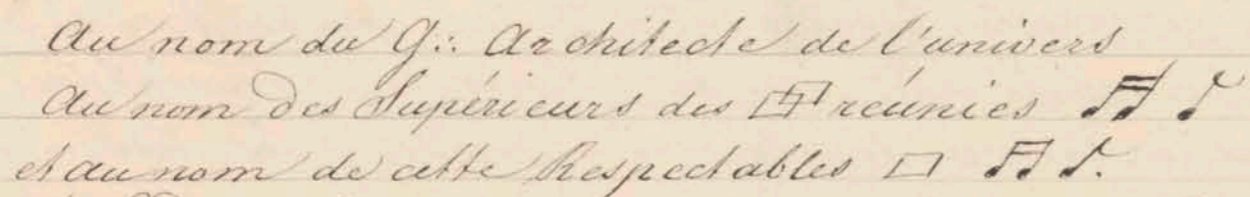 Au nom du G∴ Architecte de l'univers
Au nom des Supérieurs des réunies
et au nom de cette Respectables